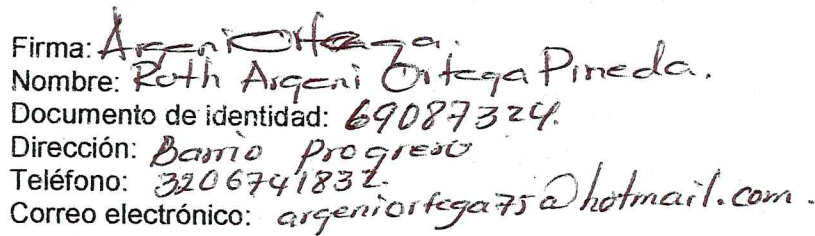 Firma: Argeni Ortega.
Nombre: Roth Argeni Ortega Pineda.
Documento de identidad: 69087324.
Dirección: Barrio progreso
Teléfono: 3206741832.
Correo electrónico: argeniortega75@hotmail.com.